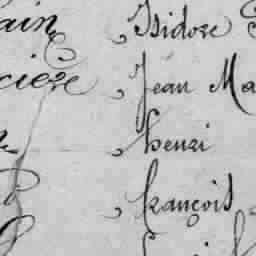 ain „ Isidore
cière „ Jean Ma
„ henri
„ françois